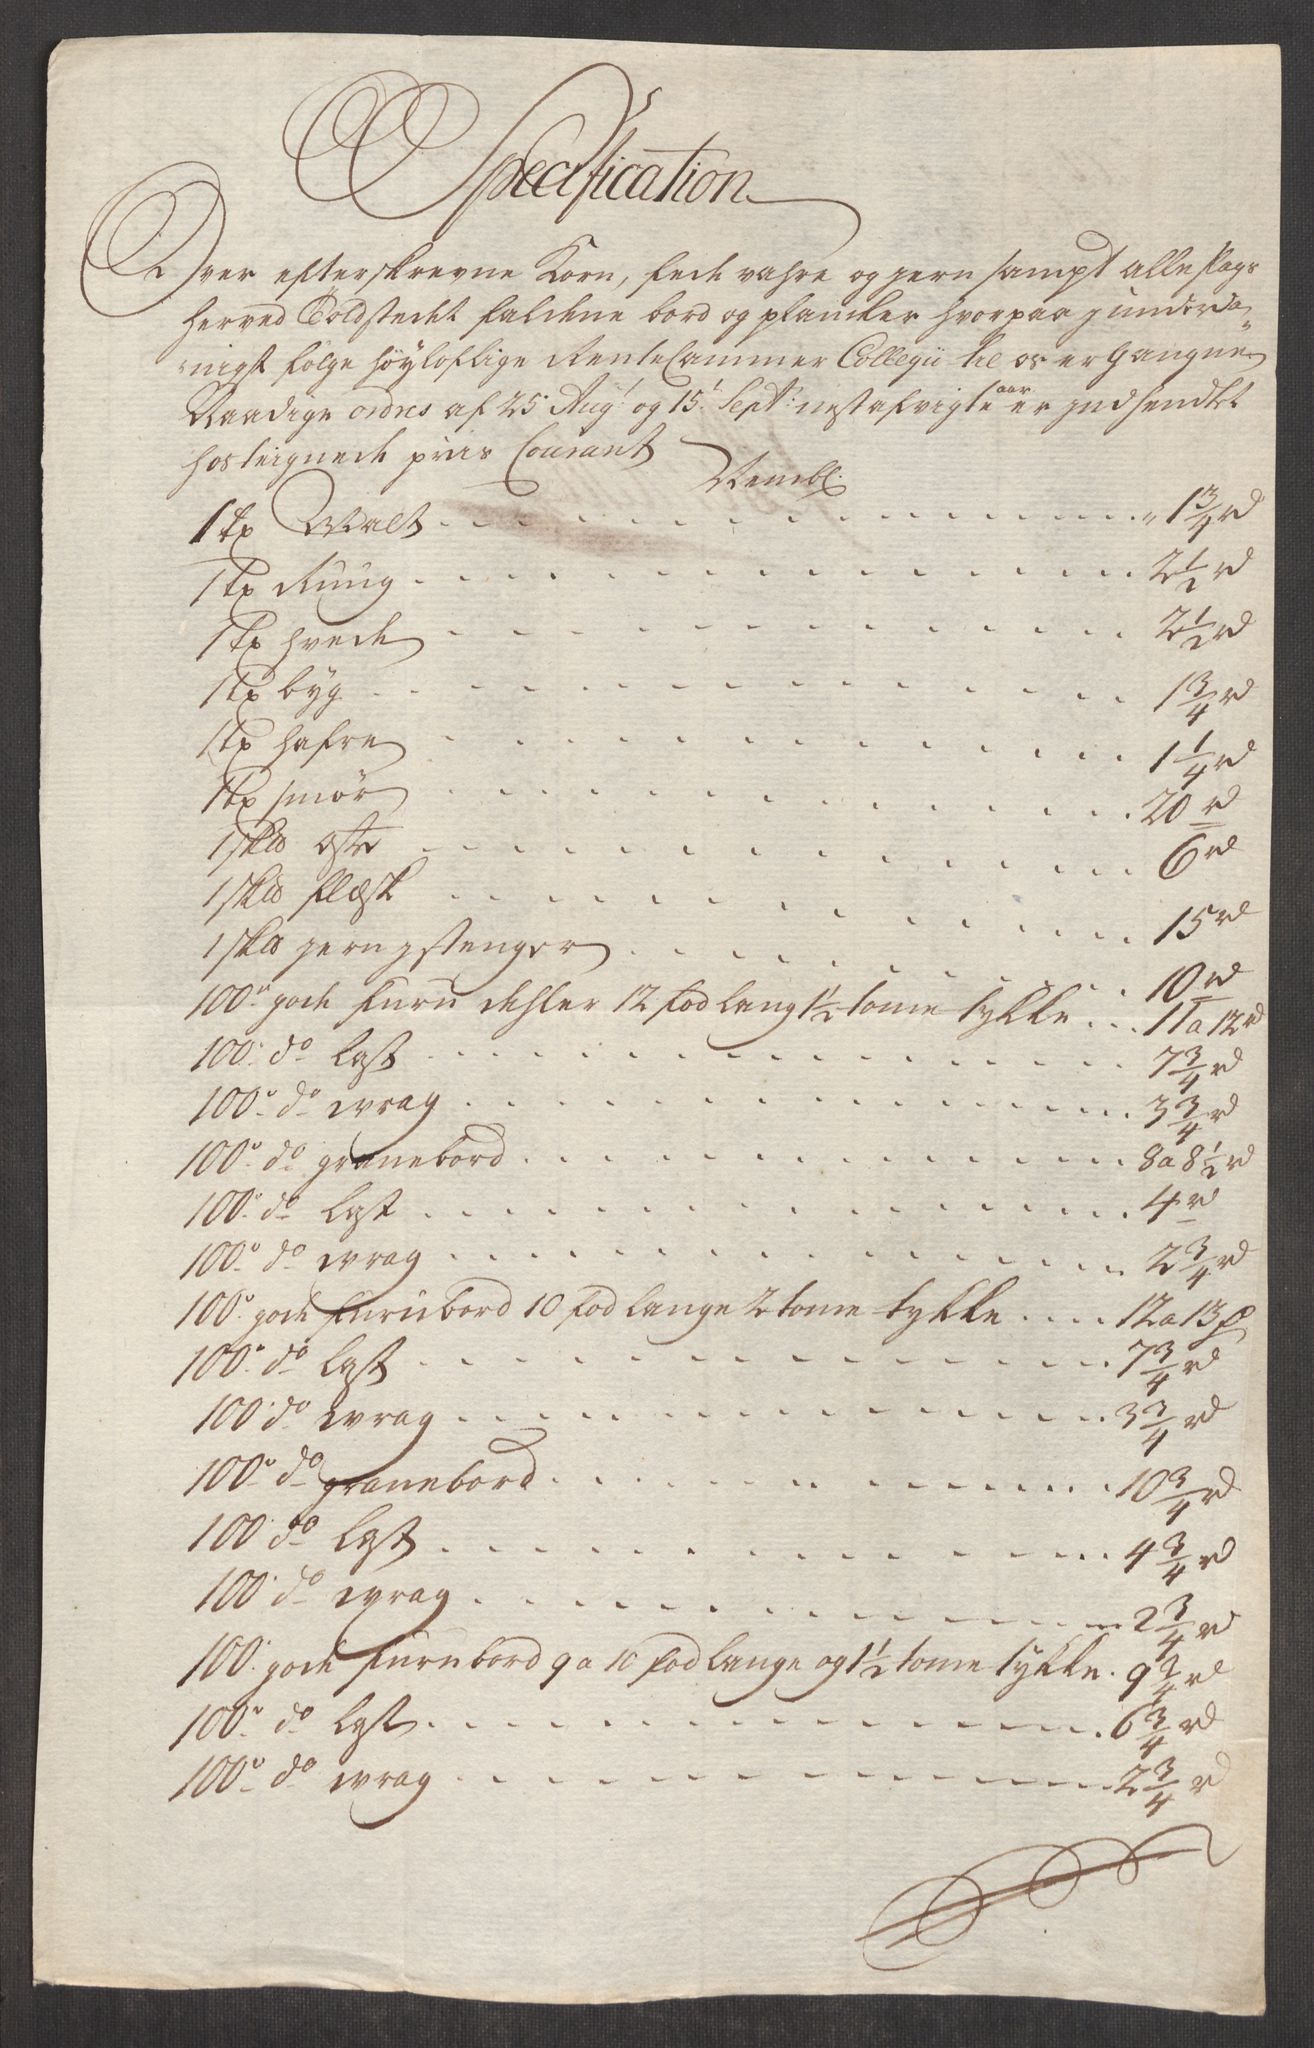 Specification
Over efterskrevne Korn, fede vahre og jern sampt alle slags
herved Toldstedet faldene bord og plancker hvorpaa j underda
nigst følge höyloflige Rente Cammer Collegii til os ergangne
Naadige ordres af 25 Aug: og 15 Sept: nest afvigte aar er jndsendtet
hosteignede priis Courant
Nembl:
1 tr Malt 1 3/4 rd
1 tr Ruug 2 1/2 rd
1 tr hvede 2 1/2 rd
1 tr byg 1 3/4 rd
1 tr hafre 1 1/4 rd
1 tr smør 20 rd
1 skld oste 6 rd
1 skld flæsk 15 rd
1 skld jern j stenger 10 rd
100 gode furu dehler 12 fod lang 1 1/2 tome tykke 11 a 12 rd
100 do løst 7 3/4 rd
100 do wrag 3 3/4 rd
100 do granebord 8 a 8 1/2 rd
100 do løst 4 rd
100 do wrag 2 3/4 rd
100 gode furubord 10 fod lange 2 tome tykke 12 a 13
100 do løst 7 3/4 rd
100 do wrag 3 3/4 rd
100 do granebord 10 3/4 rd
100 do løst 4 3/4 rd
100 do wrag 2 3/4 rd
100 gode furubord 9 a 10 fod lange og 1 1/2 tome tykke 9 3/4 rd
100 do løst 6 3/4 rd
100 do wrag 2 3/4 rd